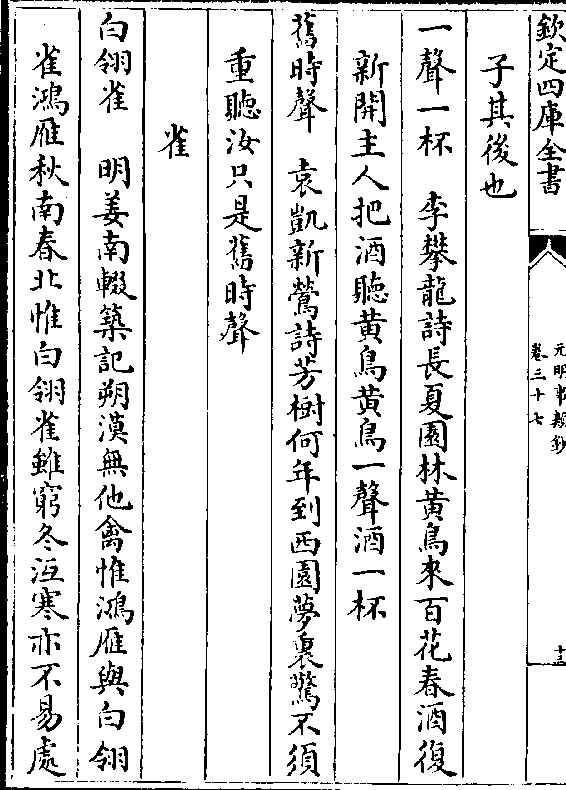 欽定四庫全書
元明事類鈔
卷三十七
十三
子其後也
一聲一杯　李攀龍詩長夏園林黄鳥來百花春酒復
新開主人把酒聽黄鳥黄鳥一聲酒一杯
舊時聲　袁凱新鶯詩芳樹何年到西園夢裏驚不須
重聽汝只是舊時聲
雀
白翎雀　明姜南輟築記朔漠無他禽惟鴻雁與白翎
雀鴻雁秋南春北惟白翎雀雖窮冬沍寒亦不易處